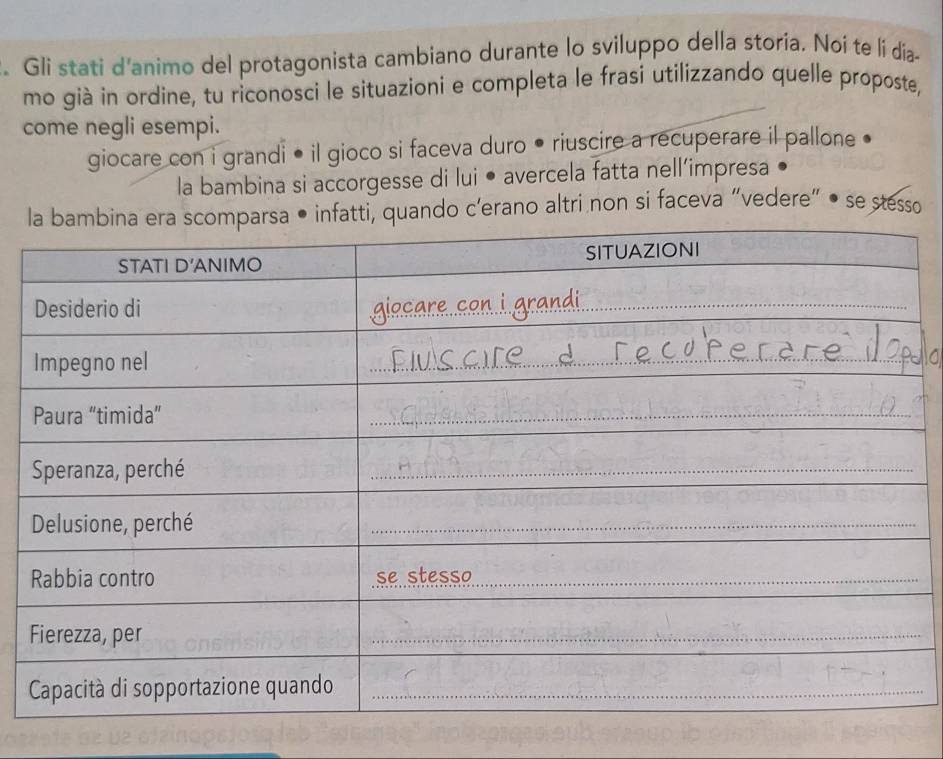 . Gli stati d'animo del protagonista cambiano durante lo sviluppo della storia. Noi te li dia-
mo già in ordine, tu riconosci le situazioni e completa le frasi utilizzando quelle proposte,
come negli esempi.
giocare con i grandi • il gioco si faceva duro • riuscire a recuperare il pallone •
la bambina si accorgesse di lui • avercela fatta nell'impresa •
la bambina era scomparsa • infatti, quando c'erano altri non si faceva "vedere" • se stesso
STATI D'ANIMO SITUAZIONI
Desiderio di giocare con i grandi
Impegno nel riuscire a recuperare il
Paura "timida"
Speranza, perché
Delusione, perché
Rabbia contro se stesso
Fierezza, per
Capacità di sopportazione quando